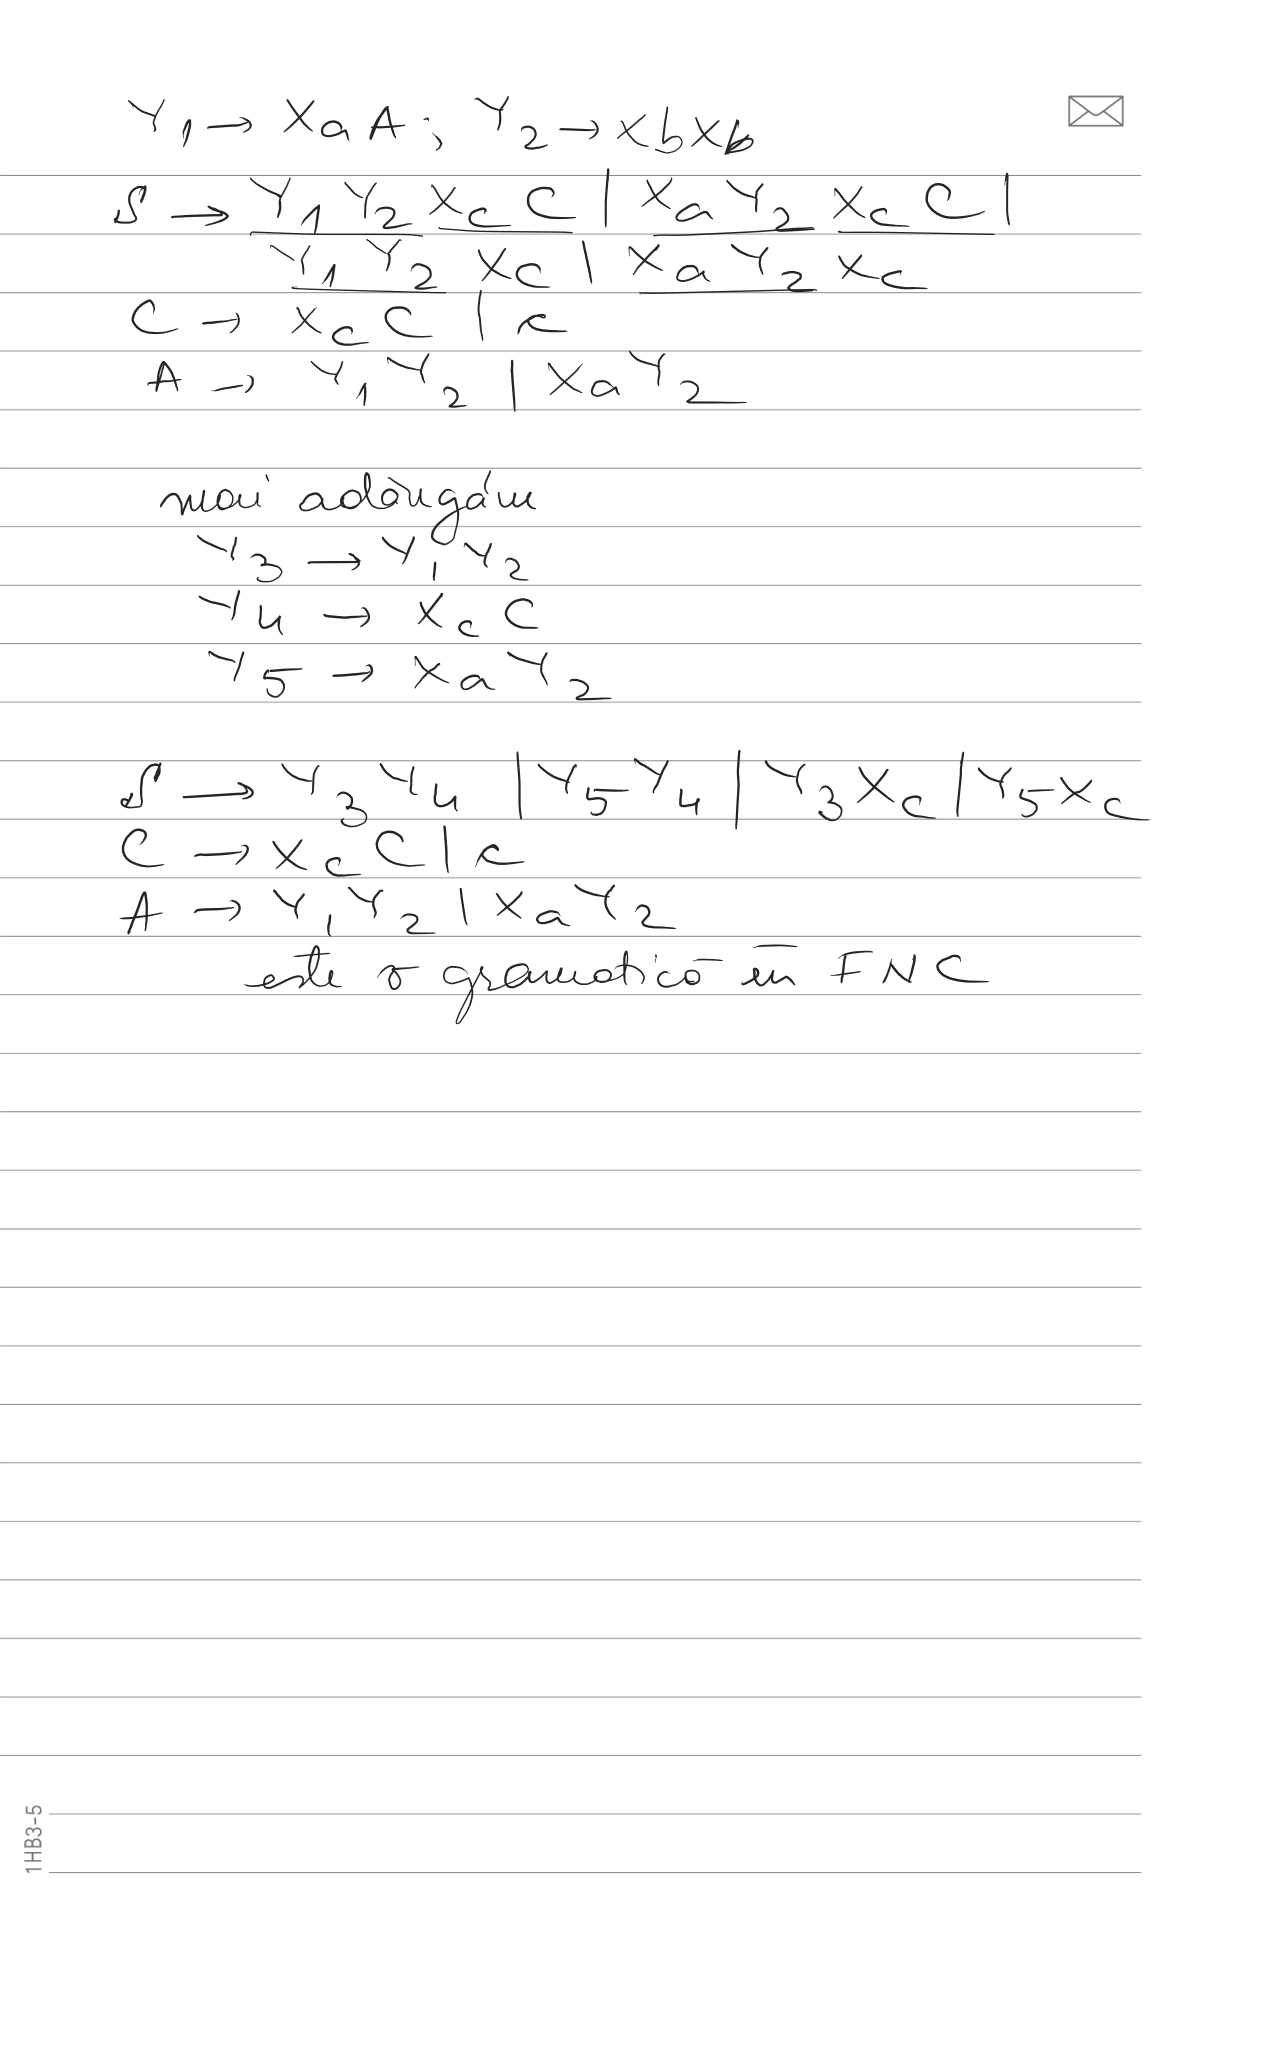 Y₁ → XaA; Y₂ → XbXb
S → Y₁Y₂XcC | XaY₂XcC |
Y₁Y₂Xc | XaY₂Xc
C → XcC | c
A → Y₁Y₂ | XaY₂
mai adăugăm
Y₃ → Y₁Y₂
Y₄ → XcC
Y₅ → XaY₂
S → Y₃Y₄ | Y₅Y₄ | Y₃Xc | Y₅Xc
C → XcC | c
A → Y₁Y₂ | XaY₂
este o gramatică în FNC
1HB3-5